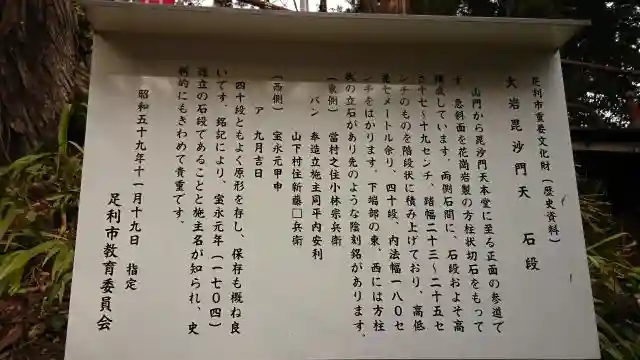 足利市重要文化財（歴史資料）
大岩毘沙門天　石段
山門から毘沙門天本堂に至る正面の参道で
す。急斜面を花崗岩製の方柱状切石をもって
構成しています。両側石間に、石段およそ高
さ十七〜十九センチ、踏幅二十三〜二十五セ
ンチのものを階段状に積み上げており、高低
差七メートル余り、四十段、内法幅一八〇セ
ンチをはかります。下端部の東、西には方柱
状の立石があり先のような陰刻銘があります。
（東側）　當村之住小林宗兵衛
バン　奉造立施主同平内安利
山下村住新藤□兵衛
（西側）　宝永元甲申
ア　九月吉日
四十段ともよく原形を存し、保存も概ね良
いです。銘記により、宝永元年（一七〇四）
造立の石段であることと施主名が知られ、史
料的にもきわめて貴重です。
昭和五十九年十一月十九日　指定
足利市教育委員会